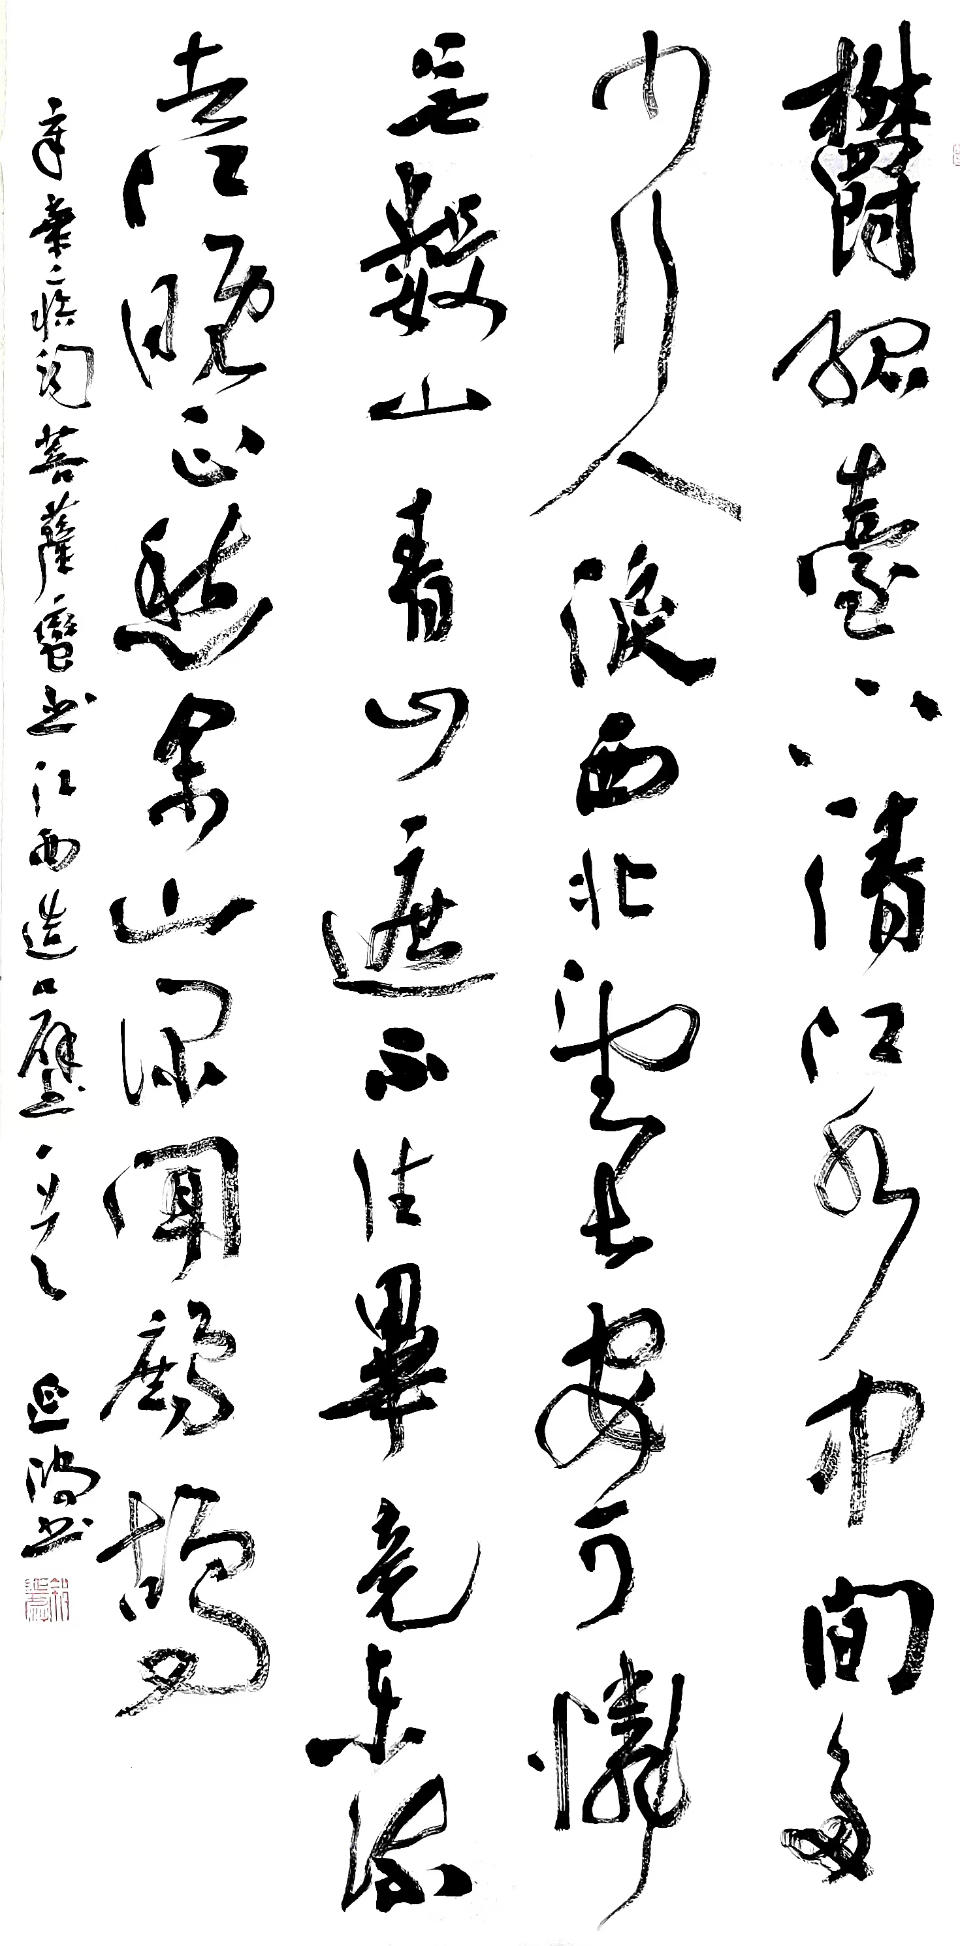 欝孤臺下清江水中間多
少行人淚西北望長安可憐
無數山青山遮不住畢竟東流
去江晚正愁余山深聞鷓鴣
辛棄疾詞菩薩蠻書江西造口壁一首 延鴻書